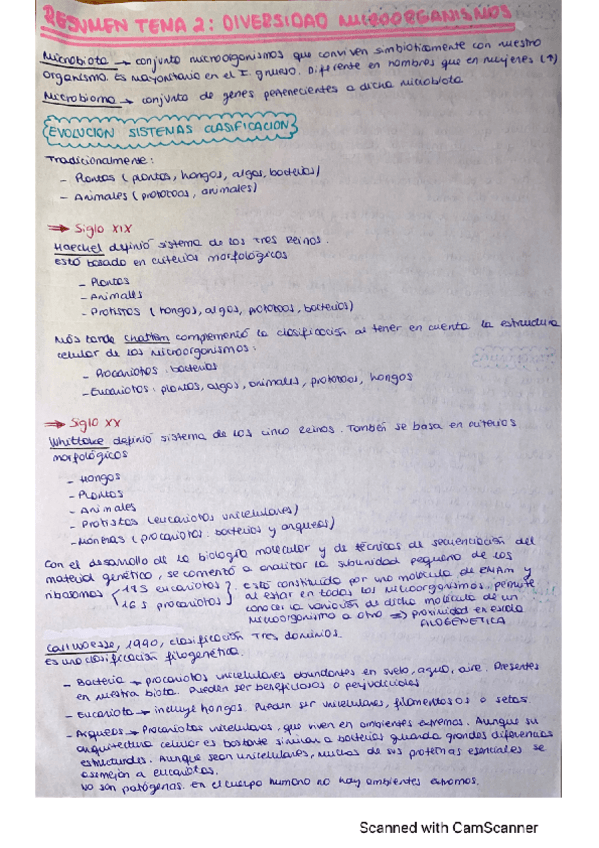 RESUMEN TEMA 2: DIVERSIDAD MICROORGANISMOS
Microbiota → conjunto microorganismos que conviven simbióticamente con nuestro
organismo. Es mayoritario en el I. grueso. Diferente en hombres que en mujeres (↑)
Microbioma → conjunto de genes pertenecientes a dicha microbiota
EVOLUCIÓN SISTEMAS CLASIFICACIÓN
Tradicionalmente:
- Plantas (plantas, hongos, algas, bacterias)
- Animales (protozoos, animales)
⇒ Siglo XIX
Haeckel definió sistema de los Tres Reinos.
está basado en criterios morfológicos
- Plantas
- Animales
- Protistas (hongos, algas, protozoos, bacterias)
Más tarde Chatton complementó la clasificación al tener en cuenta la estructura
celular de los microorganismos:
- Procariotas: bacterias
- Eucariotas: plantas, algas, animales, protozoos, hongos
⇒ Siglo XX
Whittake definió sistema de los cinco Reinos. También se basa en criterios
morfológicos
- Hongos
- Plantas
- Animales
- Protistas (eucariotas unicelulares)
- Moneras (procariotas: bacterias y arqueas)
Con el desarrollo de la biología molecular y de técnicas de secuenciación del
material genético, se comentó a analizar la subunidad pequeña de los
ribosomas { 18S eucariotas } está constituida por una molécula de RNAm y
16S procariotas } al estar en todos los microorganismos, permite
conocer la variación de dicha molécula de un
microorganismo a otro ⇒) proximidad en escala
FILOGENÉTICA
Carl Woesse, 1990, clasificación Tres dominios.
Es una clasificación filogenética.
- Bacteria → procariotas unicelulares abundantes en suelo, agua, aire. Presentes
en nuestra biota. Pueden ser beneficiosas o perjudiciales
- Eucariota → incluye hongos. Pueden ser unicelulares, filamentosos o setas.
- Arqueas → Procariotas unicelulares, que viven en ambientes extremos. Aunque su
arquitectura celular es bastante similar a bacterias guarda grandes diferencias
estructurales. Aunque sean unicelulares, muchas de sus proteínas esenciales se
asemejan a eucariotas.
No son patógenas. en el cuerpo humano no hay ambientes extremos.
Scanned with CamScanner